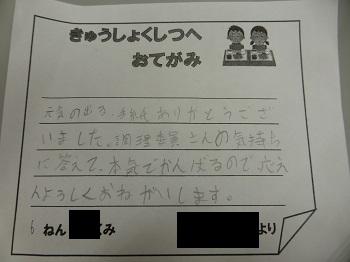 きゅうしょくしつへ
おてがみ
元気の出る、手紙ありがとうござ
いました。調理員さんの気持ち
に答えて、本気でがんばるので応え
んよろしくおねがいします。
6 ねん くみ より